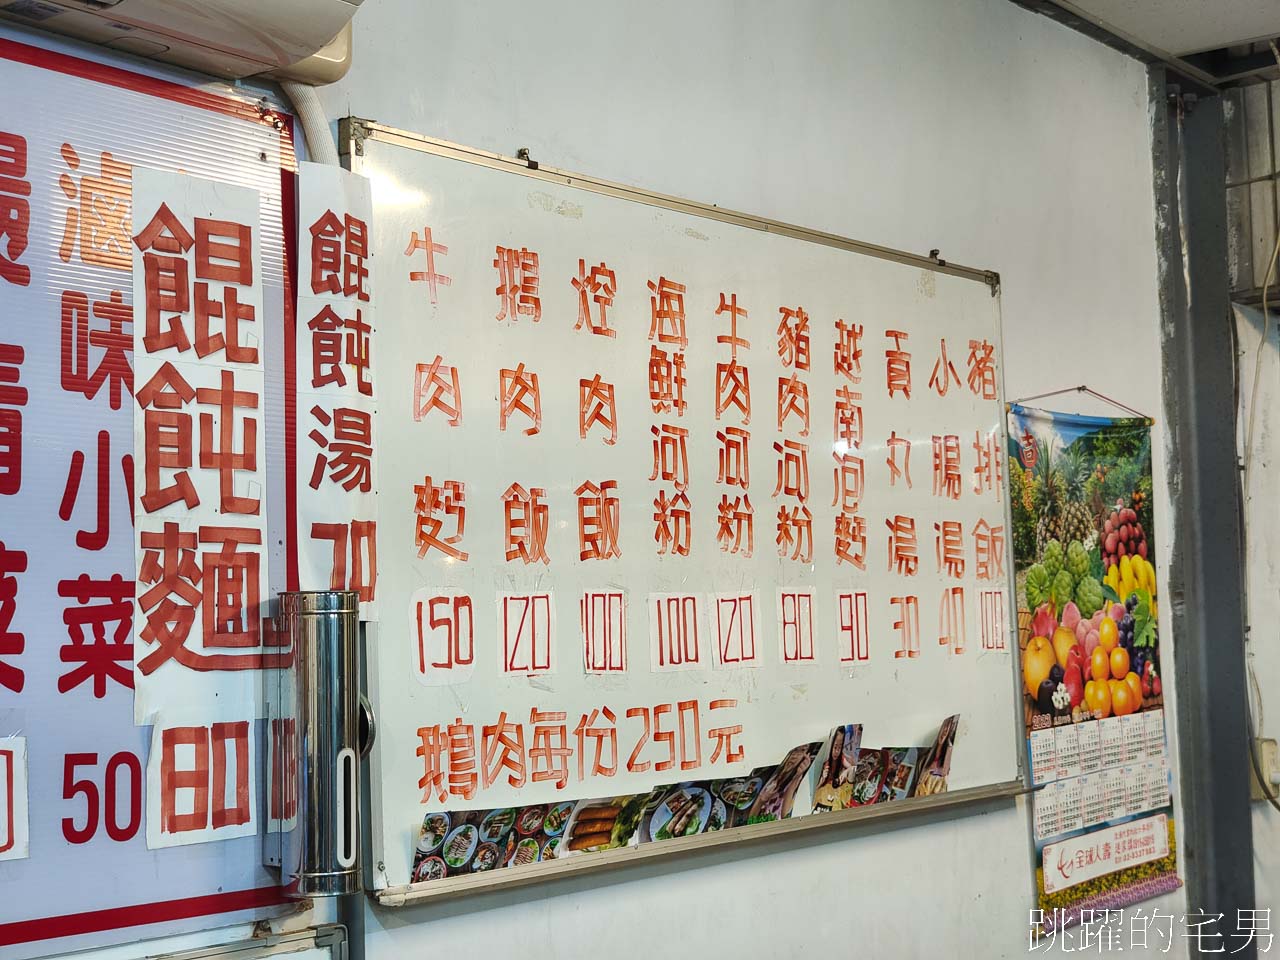 滷味小菜 50
餛飩麵 80
餛飩湯 70
牛肉麵 150
鵝肉飯 120
焢肉飯 100
海鮮河粉 100
牛肉河粉 120
豬肉河粉 80
越南河麵 90
貢丸湯 30
小腸湯 40
豬排飯 100
鵝肉每份250元
全球人壽
跳躍的宅男